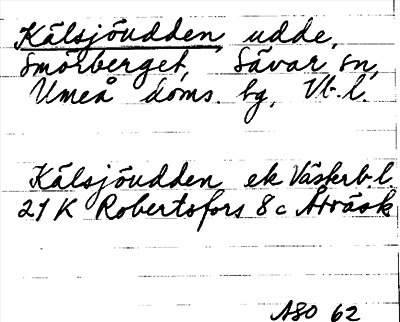 Kälsjöudden, udde,
Smörberget, Sävar sn,
Umeå doms. bg, Vb. l.
Kälsjöudden ek Västerb.l.
21 K Robertsfors 8c Åträsk
ASO 62